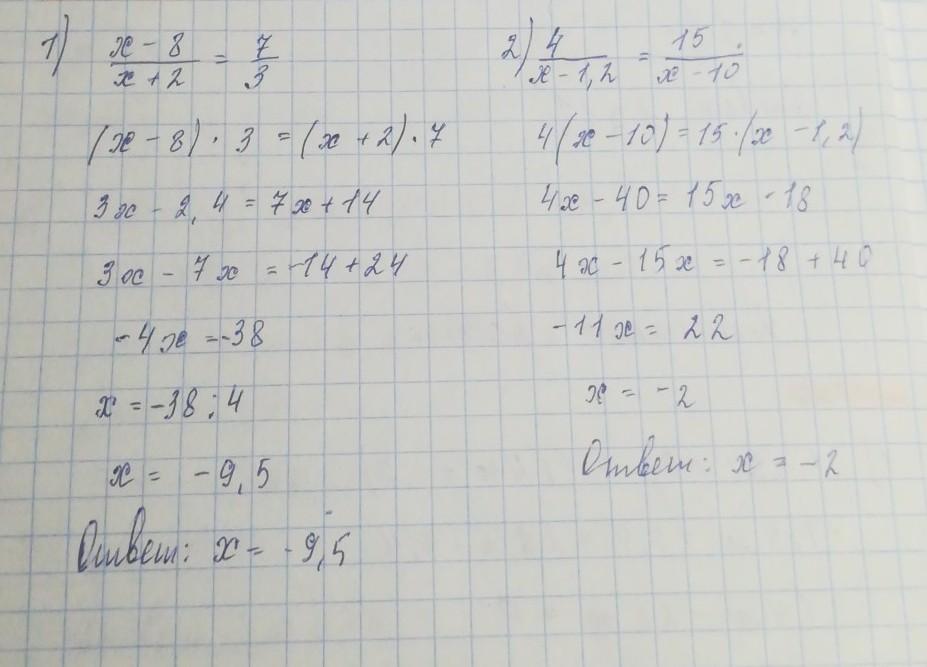 1) x - 8 / x + 2 = 7 / 3
(x - 8) · 3 = (x + 2) · 7
3x - 2,4 = 7x + 14
3x - 7x = -14 + 24
-4x = -38
x = -38 : 4
x = -9,5
Ответ: x = -9,5
2) 4 / x - 1,2 = 15 / x - 10
4(x - 10) = 15 · (x - 1,2)
4x - 40 = 15x - 18
4x - 15x = -18 + 40
-11x = 22
x = -2
Ответ: x = -2